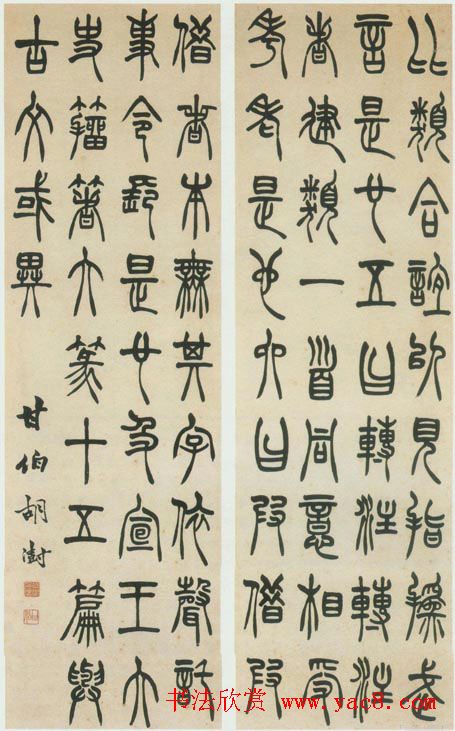 比類合誼以見指撝武
信是也五曰轉注轉注
者建類一首同意相受
考老是也六曰叚借叚
借者本無其字依聲託
事令長是也及宣王大
史籀著大篆十五篇與
古文或異
甘伯胡澍
书法欣赏 www.yac8.com